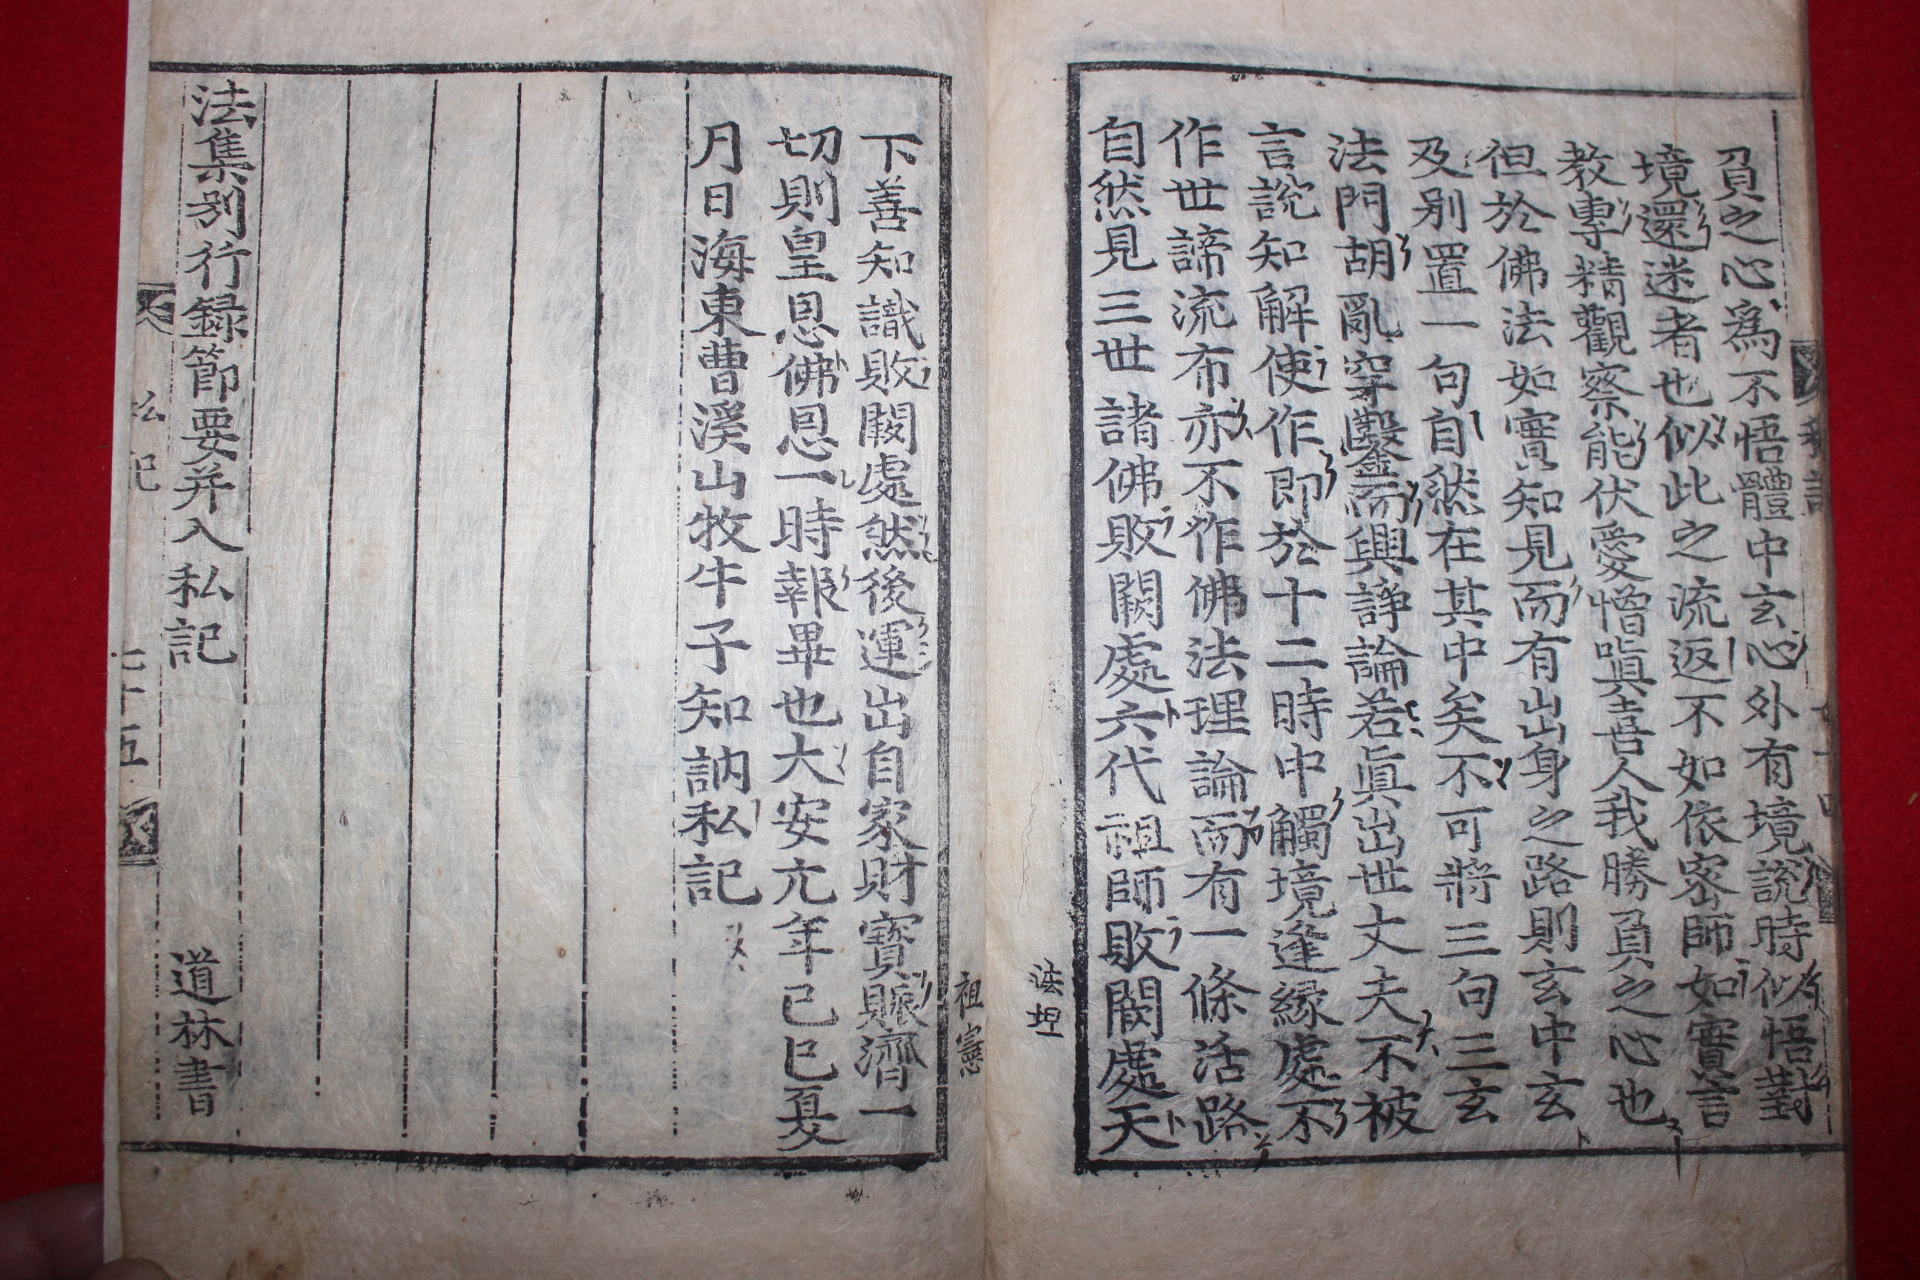 負之心爲不悟體中玄心外有境說時似悟對
境還迷者也似此之流返不如依密師如實言
教專精觀察能伏愛憎嗔喜人我勝負之心也
但於佛法如實知見而有出身之路則玄中玄
及別置一句自然在其中矣不可將三句三玄
法門胡亂穿鑿而興諍論若眞出世丈夫不被
言說知解使作卽於十二時中觸境逢緣處不
作世諦流布亦不作佛法理論而有一條活路
自然見三世諸佛敗闕處六代祖師敗闕處天
下善知識敗闕處然後運出自家財寶賑濟一
切則皇恩佛恩一時報畢也大安亢年已巳夏
月日海東曹溪山牧牛子知訥私記
法集別行録節要并入私記 道林書
私記
七十五
法坦
祖憲